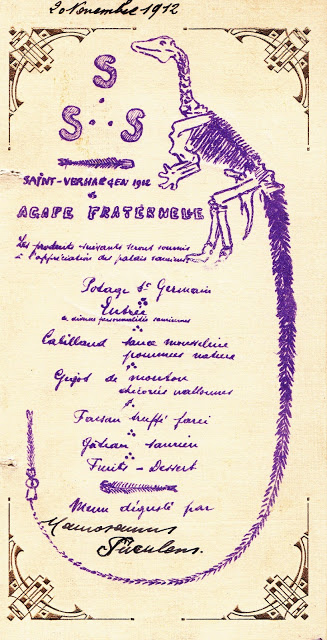 20 Novembre 1912
S
S S
SAINT-VERHAEGEN 1912
AGAPE FRATERNELLE
Les produits suivants seront soumis
à l'appréciation des palais sauriens.
Potage St Germain
Entrée
à diverses personnalités sauriennes
Cabillaud sauce mousseline
pommes nature
Gigot de mouton
chicorées wallonnes
Faisan truffé farci
Gâteau saurien
Fruits - Dessert
Menu dégusté par